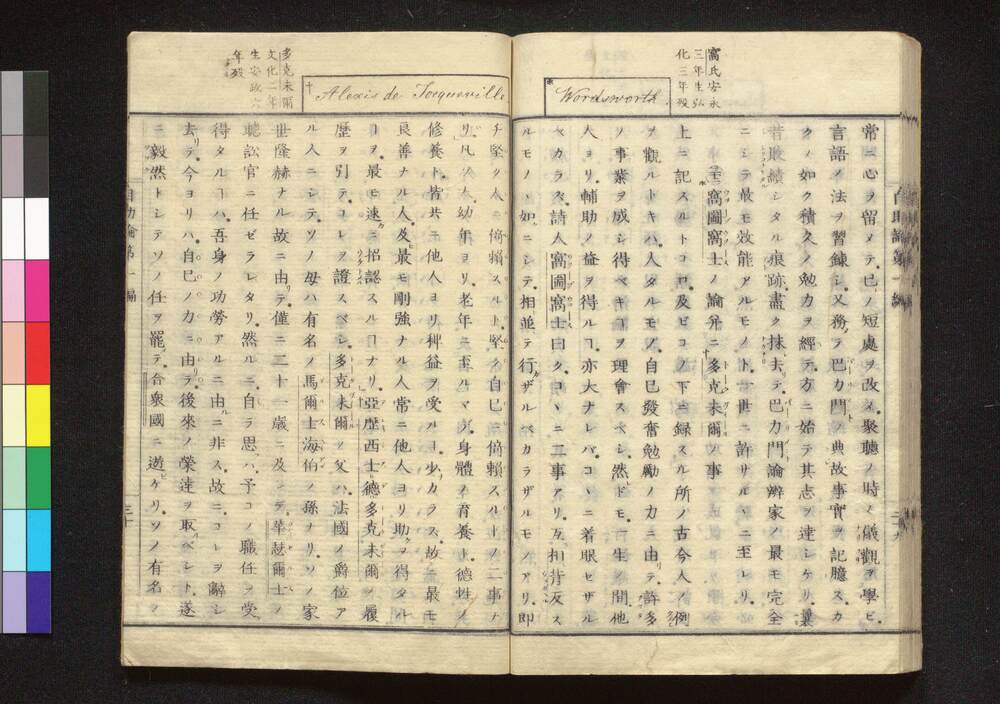 窩氏安永
三年生弘
化三年殁
Wordsworth.
常ニ心ヲ留メテ已ノ短處ヲ改メ聚聽ノ時ノ儀觀ヲ學ビ
言語ノ法ヲ習錬シ又務テ巴力門ノ典故事實ヲ記臆スカ
クノ如ク積久ノ勉力ヲ經テ方ニ始テ其志ヲ達シケリ曩
昔敗績シタル痕跡盡ク抹去テ巴力門論辯家ノ最モ完全
ニシテ最モ效能アルモノト世ニ許サルヽニ至レリ
窩圖窩士ノ論并ニ多克未爾ノ事
上ニ記スルトコロ及ビコノ下ニ録スル所ノ古今人ノ例
ヲ觀ルトキハ人タルモノ自已發奮勉勵ノ力ニ由テ許多
ノ事業ヲ成シ得ベキヿヲ理會スベシ然ドモ一生ノ間他
人ヨリ輔助ノ益ヲ得ルヿ亦大ナレバコヽニ着眼セザル
ベカラズ詩人窩圖窩士曰クコヽニ二事アリ互相背反ス
ルモノヽ如ニシテ相並テ行ザルベカラザルモノアリ即
多克未爾
文化二年
生安政六
年殁
Alexis de Tocqueville
チ堅ク人ニ倚賴スルト堅ク自已ニ倚賴スルトノ二事ナ
リ凡ソ人幼年ヨリ老年ニ至ルマデ身體ノ育養ト德性ノ
修養ト皆共ニ他人ヨリ裨益ヲ受ルヿ少カラズ故ニ最モ
良善ナル人及ビ最モ剛強ナル人常ニ他人ヨリ助ヲ得タル
ヿヲ最モ速ニ招認スルヿナリ亞歴西士德多克未爾ノ履
歴ヲ引テコレヲ證スベシ多克未爾ソノ父ハ法國ノ爵位ア
ル人ニシテソノ母ハ有名ノ馬爾士海伯ノ孫ナリソノ家
世隆赫ナル故ニ由テ僅ニ二十一歳ニ及ンデ華爾士ノ
聽訟官ニ任ゼラレタリ然ルニ自ラ思ハク予コノ職任ヲ受
得タルヿハ吾身ノ功勞アルニ由ルニ非ズ故ニコレヲ辭シ
去リテ今ヨリハ自已ノ力ニ由テ後來ノ榮達ヲ取ベシト遂
ニ毅然トシテソノ任ヲ罷テ合衆國ニ遊ビケリソノ有名ノ
自助論第一編
三十